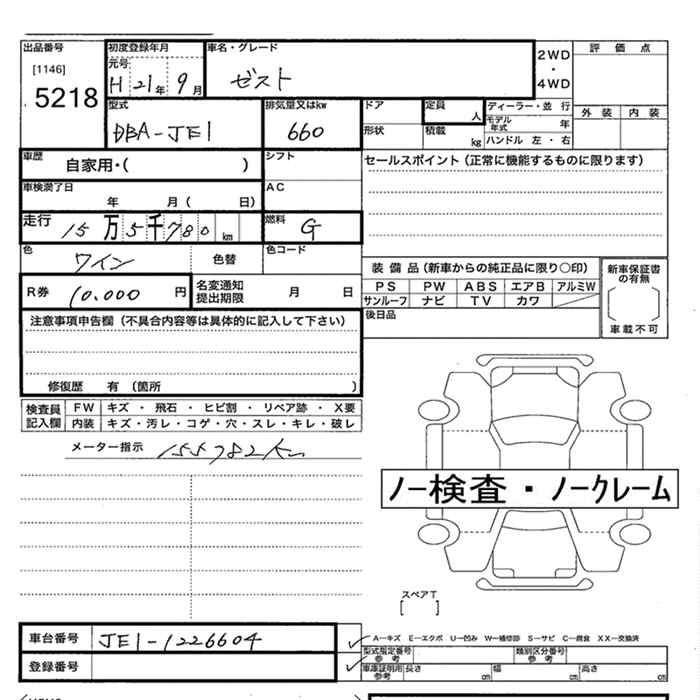 出品番号
[1146]
5218
初度登録年月
元号
H 21年 9月
車名・グレード
ゼスト
2WD
・
4WD
評価点
外装 内装
型式
DBA-JE1
排気量又はkw
660
ドア
形状
定員
人
積載
kg
ディーラー・並 行
モデル年式 年
ハンドル 左・右
車歴
自家用・( )
シフト
車検満了日
年 月( 日)
AC
走行
15万5千780km
燃料
G
色
ワイン
色替
色コード
R券
10.000円
名変通知
提出期限
月 日
セールスポイント(正常に機能するものに限ります)
装備品(新車からの純正品に限り○印)
PS PW ABS エアB アルミW
サンルーフ ナビ TV カワ
後日品
新車保証書
の有無
車載不可
注意事項申告欄(不具合内容等は具体的に記入して下さい)
修復歴 有(箇所 )
検査員
記入欄
FW キズ・飛石・ヒビ割・リペア跡・X要
内装 キズ・汚レ・コゲ・穴・スレ・キレ・破レ
メーター指示 155782km
ノー検査・ノークレーム
スペアT
[ ]
車台番号
JE1-1226604
登録番号
A－キズ E－エクボ U－凹み W－補修跡 S－サビ C－腐食 XX－交換済
型式指定番号
参考
類別区分番号
参考
車庫証明用
参考
長さ cm 幅 cm 高さ cm